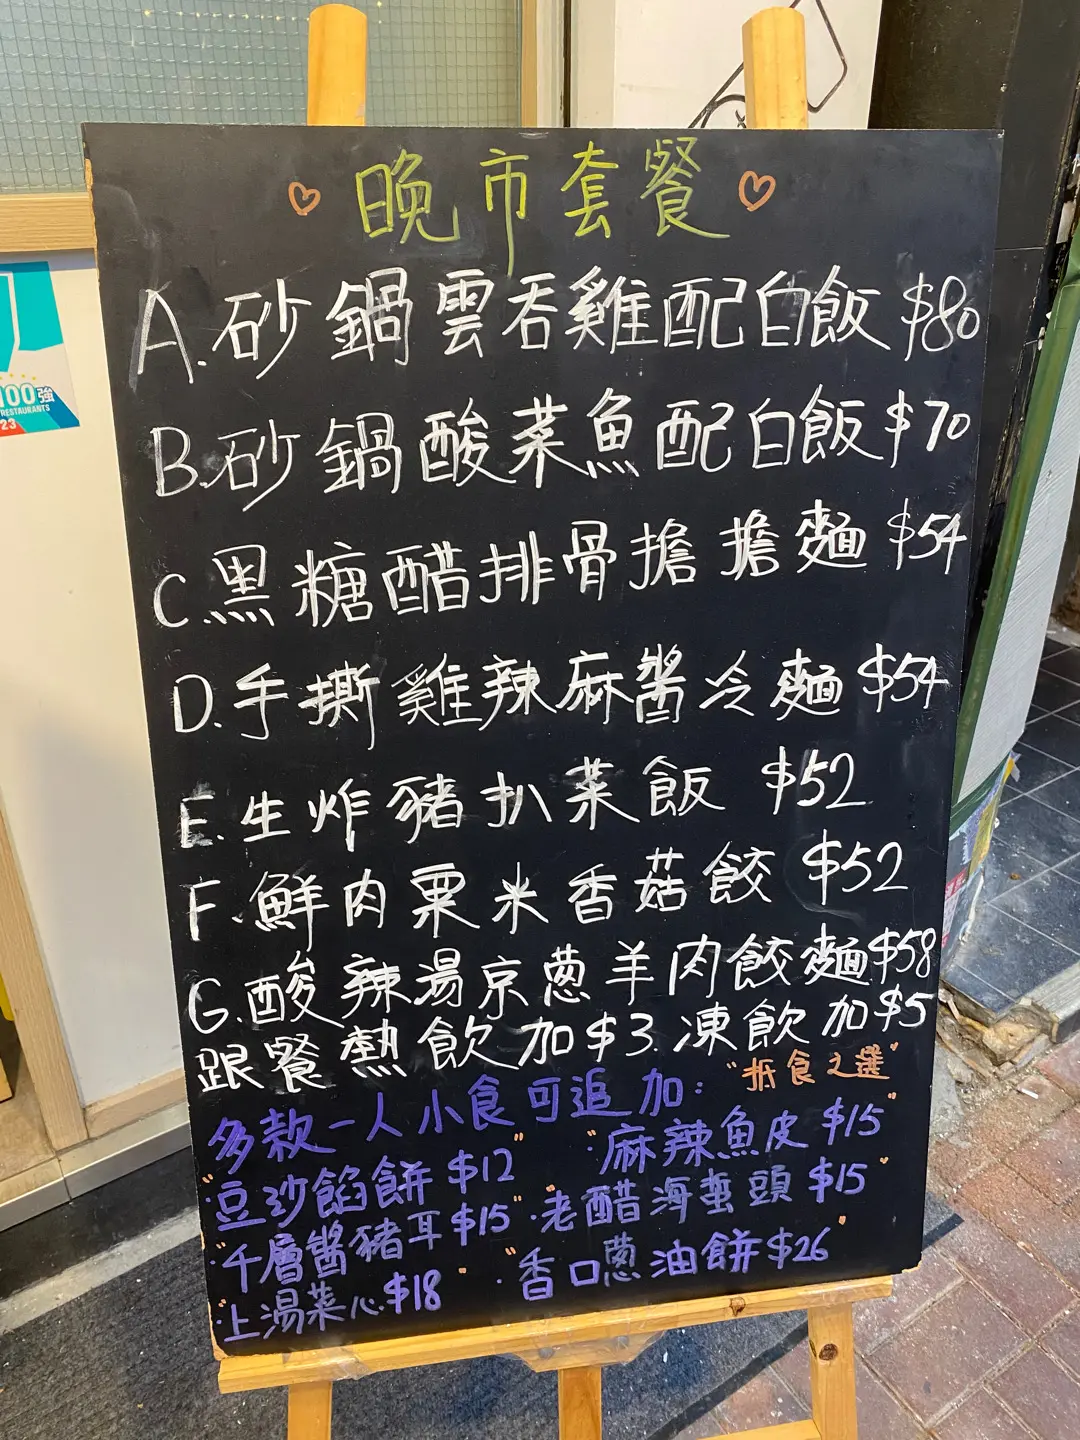 晚市套餐
A.砂鍋雲吞雞配白飯 $80
B.砂鍋酸菜魚配白飯 $70
C.黑糖醋排骨擔擔麵 $54
D.手撕雞辣麻醬冷麵 $54
E.生炸豬扒菜飯 $52
F.鮮肉粟米香菇餃 $52
G.酸辣湯京蔥羊肉餃麵 $58
跟餐熱飲加$3.凍飲加$5
"抵食之選"
多款一人小食可追加:
"豆沙餡餅 $12"
"麻辣魚皮 $15"
"千層醬豬耳 $15"
·老醋海蜇頭 $15"
"上湯菜心 $18"
"香口蔥油餅 $26"
100強
RESTAURANTS
23